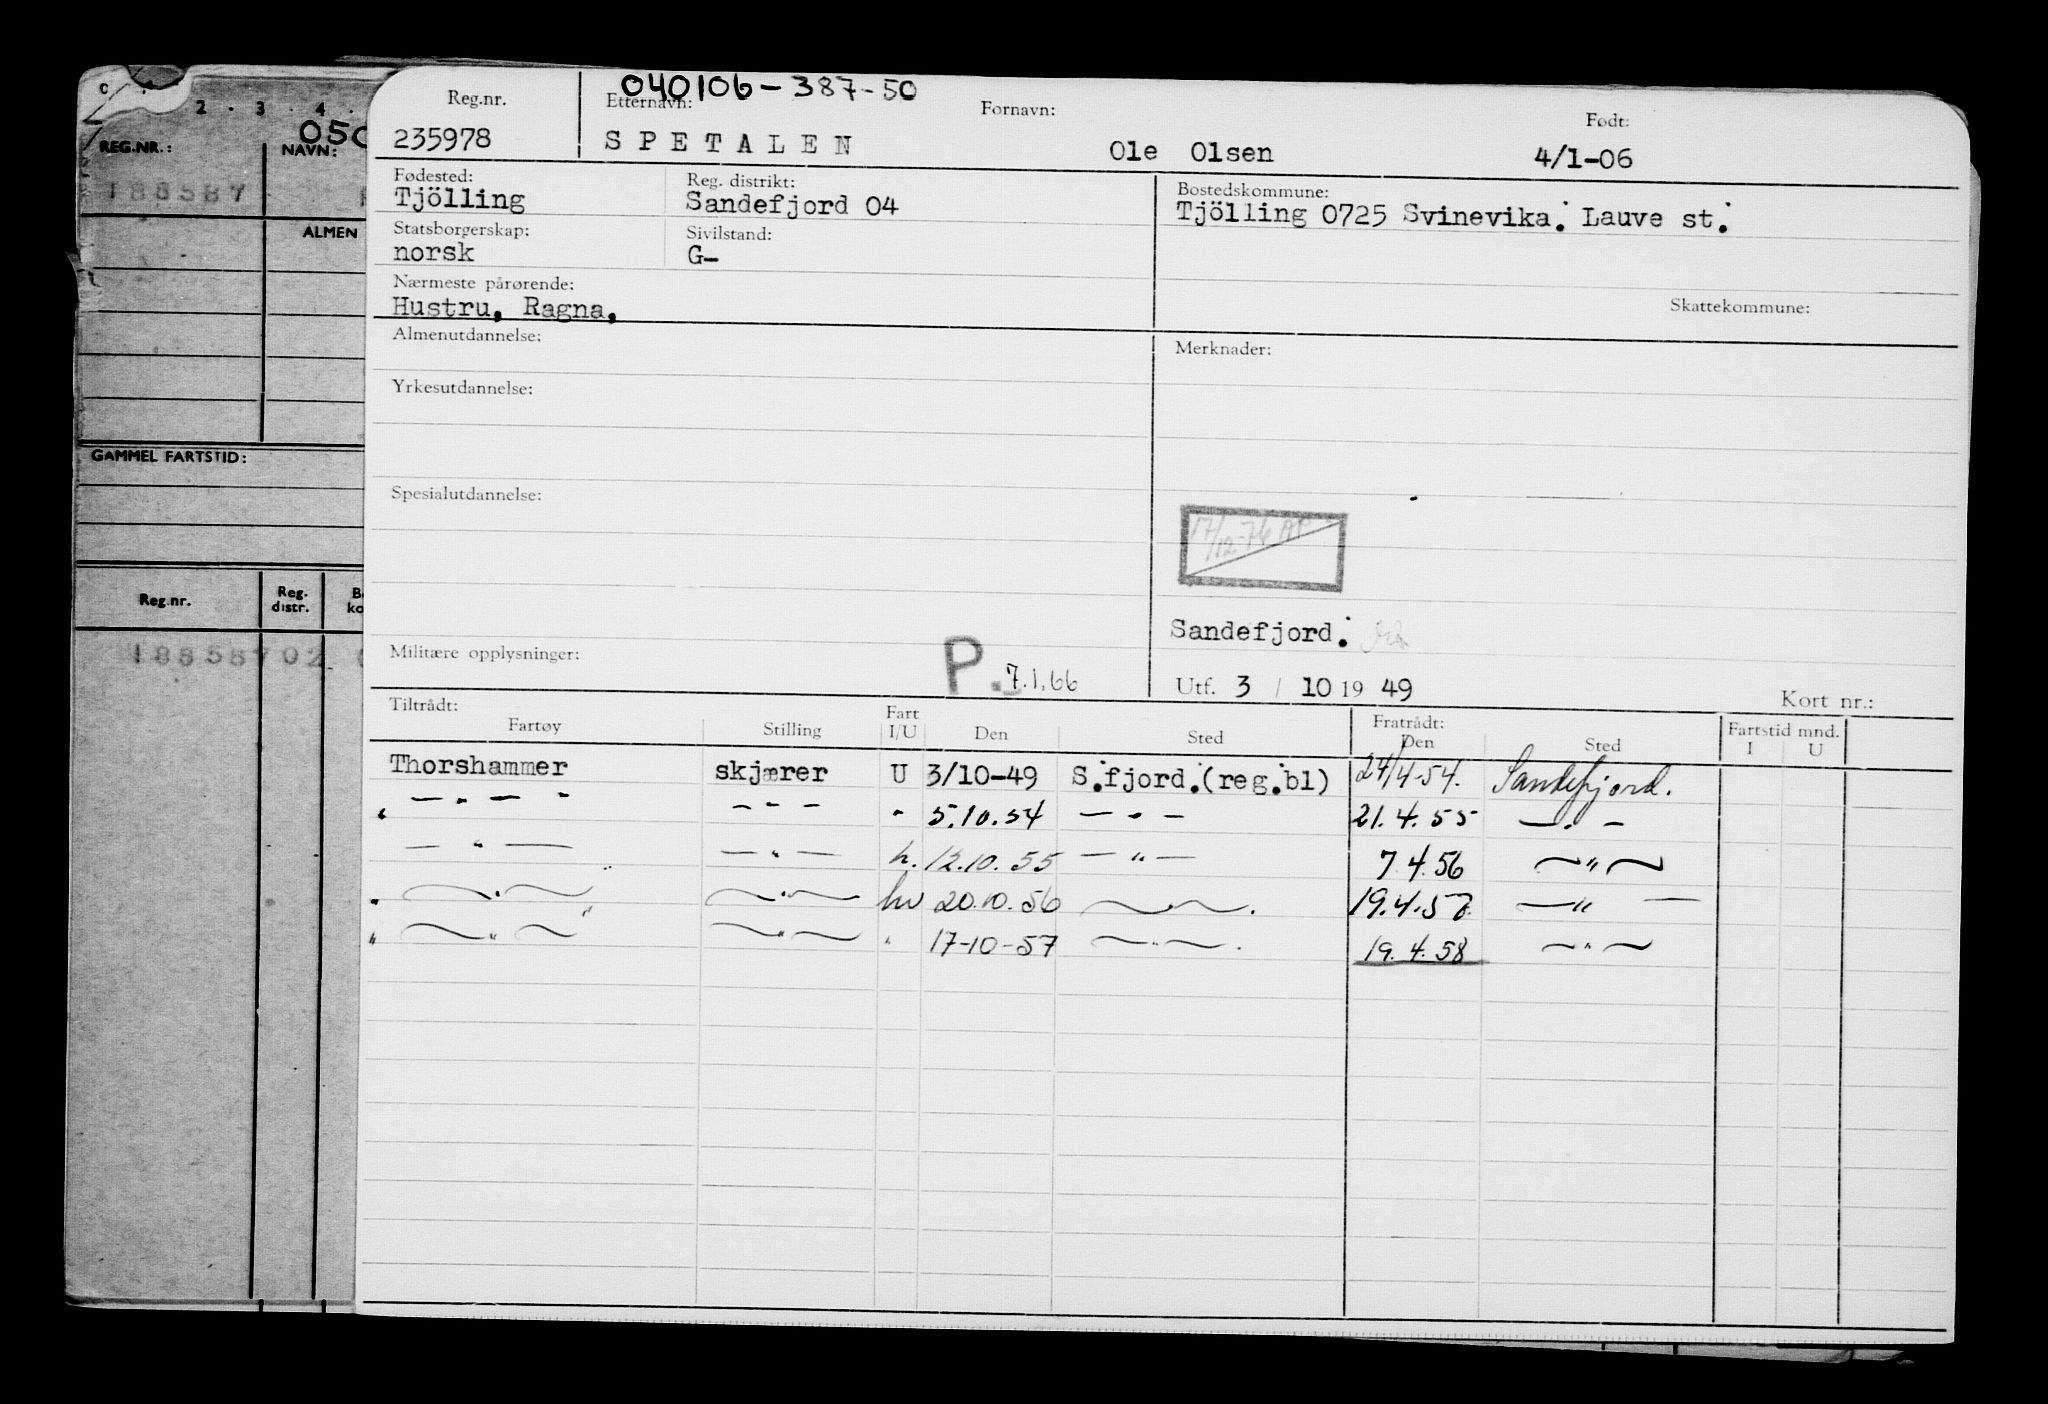 040106-387-50
Reg.nr. Etternavn: Fornavn: Født:
235978 SPETALEN Ole Olsen 4/1-06
Fødested: Reg. distrikt: Bostedskommune:
Tjölling Sandefjord 04 Tjölling 0725 Svinevika. Lauve st.
Statsborgerskap: Sivilstand:
norsk G-
Nærmeste pårørende: Skattekommune:
Hustru, Ragna.
Almenutdannelse: Merknader:
Yrkesutdannelse:
Spesialutdannelse:
17/12-76
Sandefjord.
Militære opplysninger: P. 7.1.66
Utf. 3 / 10 19 49 Kort nr.:
Tiltrådt: Fratrådt: Fartstid mnd.
Fartøy Stilling Fart I/U Den Sted Den Sted I U
Thorshammer skjærer U 3/10-49 S.fjord.(reg.bl) 24/4-54. Sandefjord.
" — " — — " — " 5.10.54 — " — 21.4.55 — " —
— " — — " — h. 12.10.55 — " — 7.4.56 — " —
" — " — — " — hv 20.10.56 — " — 19.4.57. — " —
" — " — — " — " 17-10-57 — " — 19.4.58 — " —
0 1
2 . 3 . 4 .
050
REG.NR.: NAVN:
188587
ALMEN
GAMMEL FARTSTID:
Reg.nr. Reg. distr.
188587 02